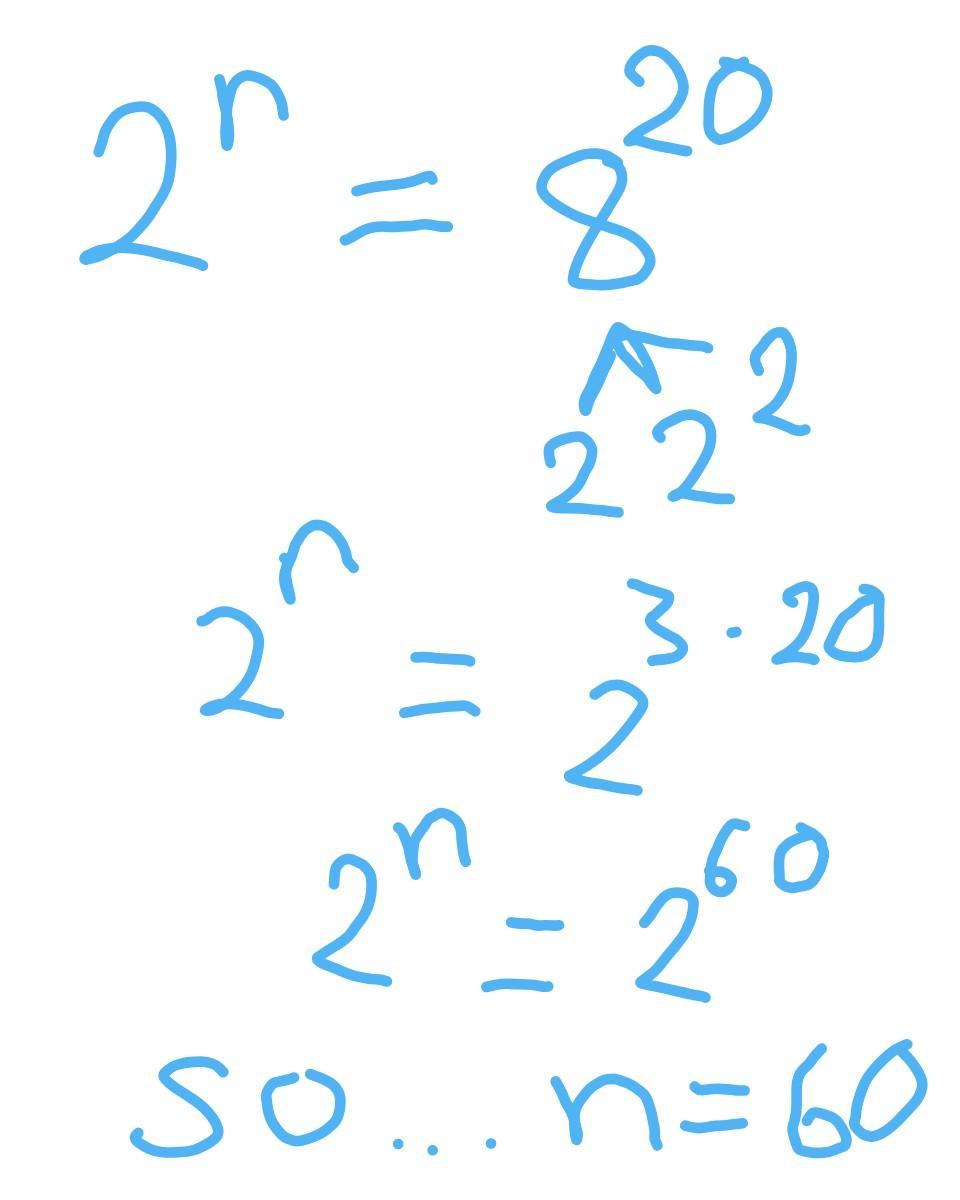 2ⁿ = 8²⁰
2 2 2
2ⁿ = 2³·²⁰
2ⁿ = 2⁶⁰
so... n=60